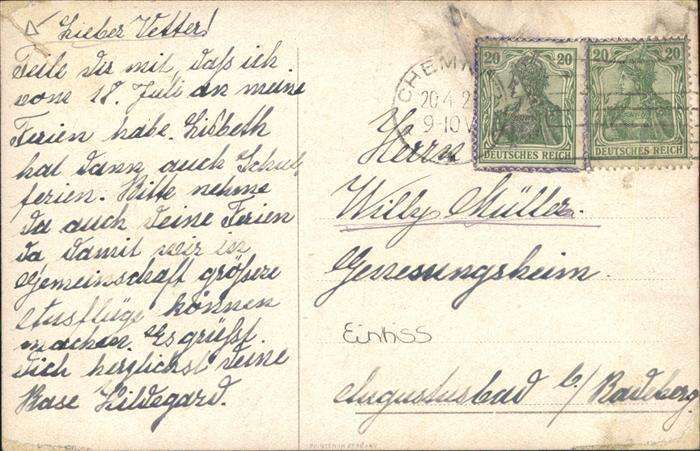 Lieber Vetter!
Teile Dir mit, daß ich
vom 18. Juli an meine
Ferien habe. Lisbeth
hat dann auch Schul-
ferien. Bitte nehme
da auch Deine Ferien
da damit wir in
Gemeinschaft größere
Ausflüge können
machen. Es grüßt
Dich herzlichst Deine
Base Hildegard.
20 20
DEUTSCHES REICH
20 20
DEUTSCHES REICH
CHEMN
20.4.2
9-10V
Herrn
Willy Müller.
Genesungsheim.
Einkiss
Augustusbad b/Radeberg